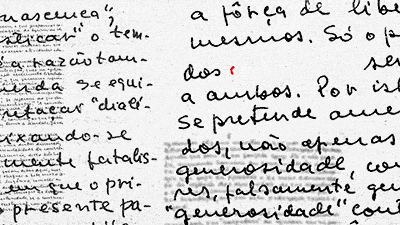 nasceuça",
o tem-
a razão tam-
se equi-
"diali-
ixando-se
mente fatalis-
em que o pri-
o presente pa-
a fôrça de libe
mesmos. Só o p
dos
ser
a ambos. Por is
se pretende ame
dos, não apenas
generosidade, con
res, falsamente gen
"generosidade" cont